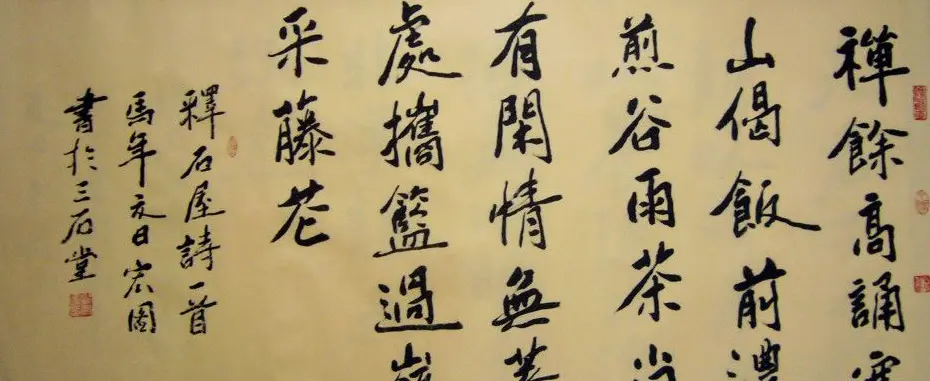 禪餘高誦寒
山偈飯前濃
煎谷雨茶尚
有閑情無著
處攜籃過嶺
采藤花
釋石屋詩一首
馬年夏日宏圖
書於三石堂